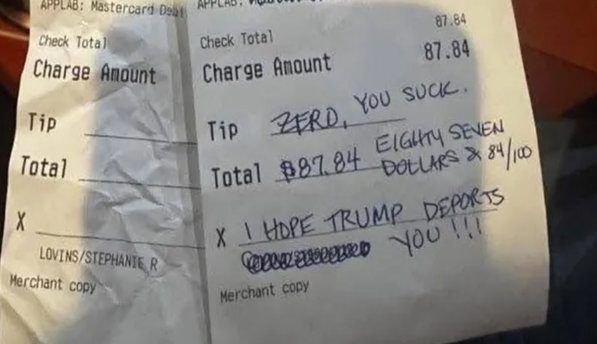 APPLAB: Mastercard Debi
Check Total
Charge Amount
Tip
Total
X
LOVINS/STEPHANIE R
Merchant copy
APPLAB:
87.84
Check Total
87.84
Charge Amount
Tip ZERO, YOU SUCK.
Total $87.84 EIGHTY SEVEN
DOLLARS & 84/100
X I HOPE TRUMP DEPORTS
YOU!!!
Merchant copy